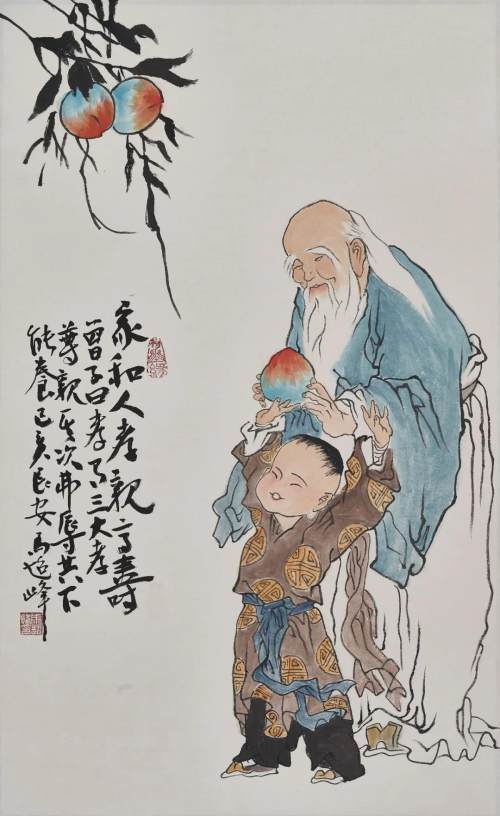 家和人孝親高壽
曾子曰孝有三大孝
尊親其次弗辱其下
能養己亥長安馬峰